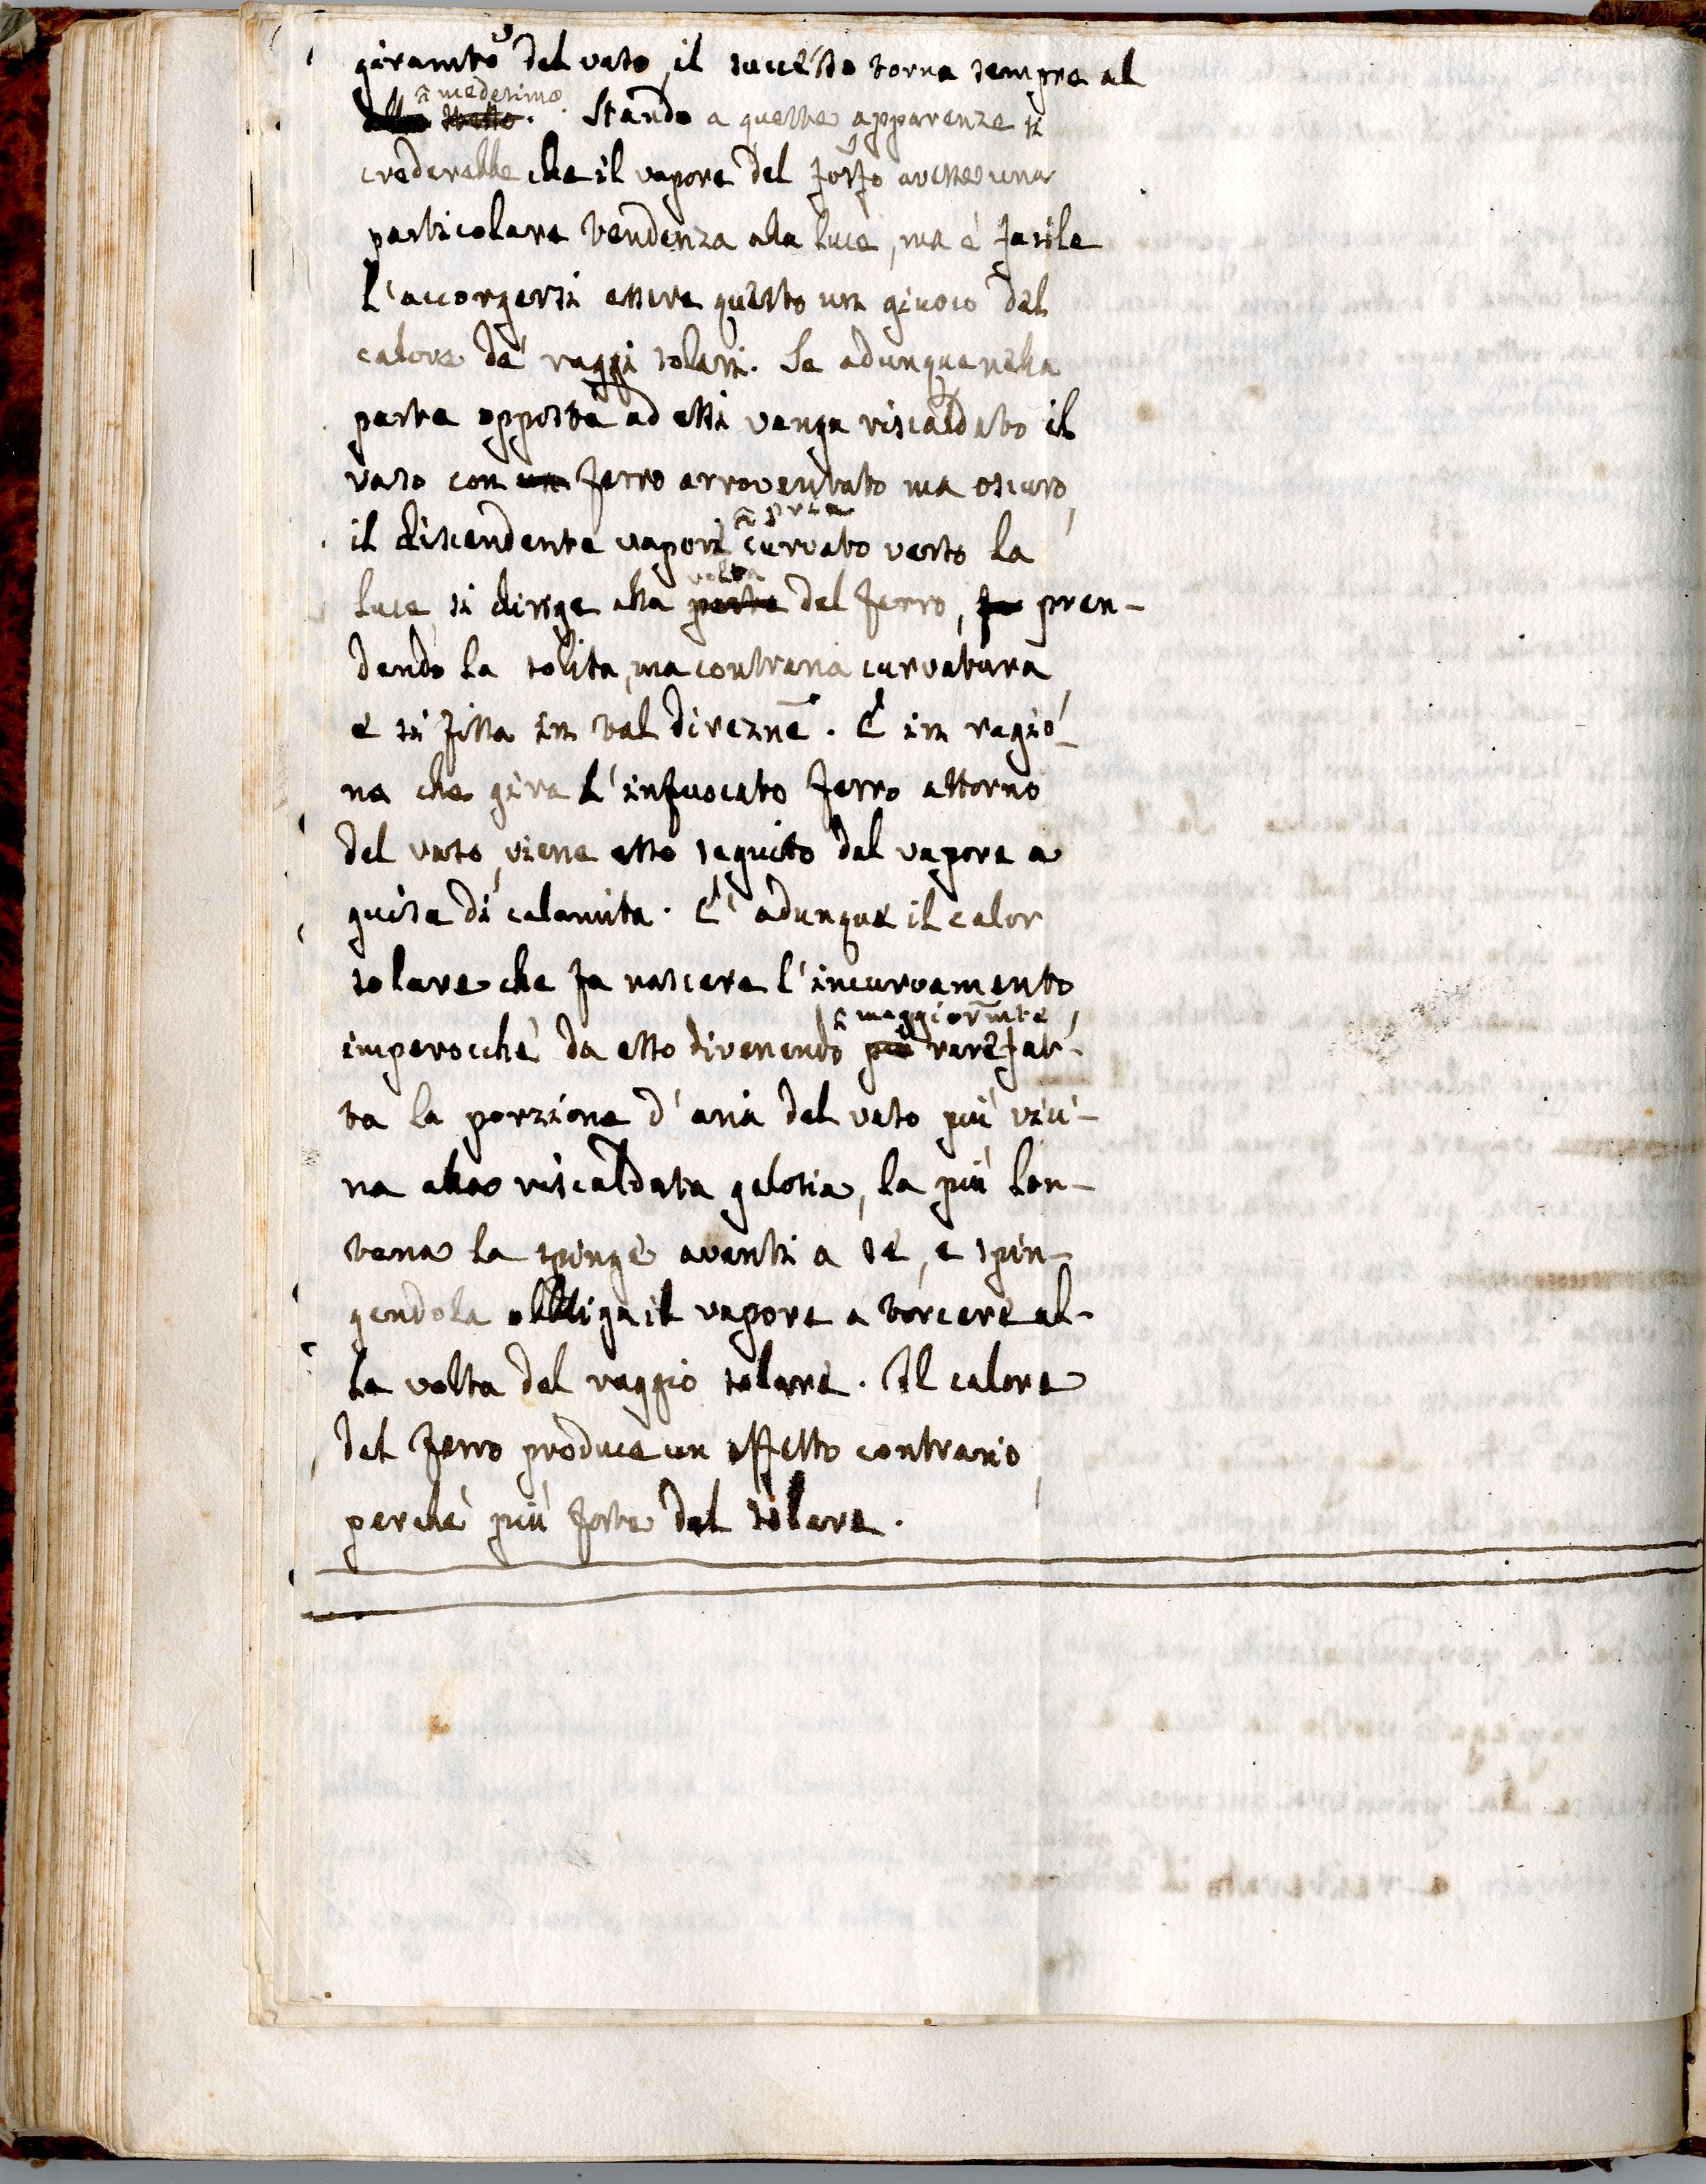 giramto del vaso, il successo torna sempre al
medesimo
stesso. Stando a queste apparenze si
crederebbe che il vapore del fosfo avesse una
particolare tendenza alla luce, ma è facile
l'accorgersi essere questo un giuoco del
calore de' raggi solari. Se adunque nella
parte opposta ad essi venga riscaldato il
vaso con un ferro arroventato ma oscuro,
il discendente vapore curvato verso la
volta
luce, si dirige alla parte del ferro, pren-
dendo la solita, ma contraria curvatura,
e si fissa in tal direzne. E in ragio-
ne che gira l'infuocato ferro attorno
del vaso, viene esso seguito dal vapore a
guisa di calamita. E' adunque il calor
solare che fa nascere l'incurvamento,
maggiormte
imperocchè da esso divenendo più rarefat-
ta la porzione d'aria del vaso più vici-
na alla riscaldata gelosia, la più lon-
tana la spinge avanti a se, e spin-
gendola obbliga il vapore a torcere al-
la volta del raggio solare. Il calore
del ferro produce un effetto contrario,
perchè più forte del solare.